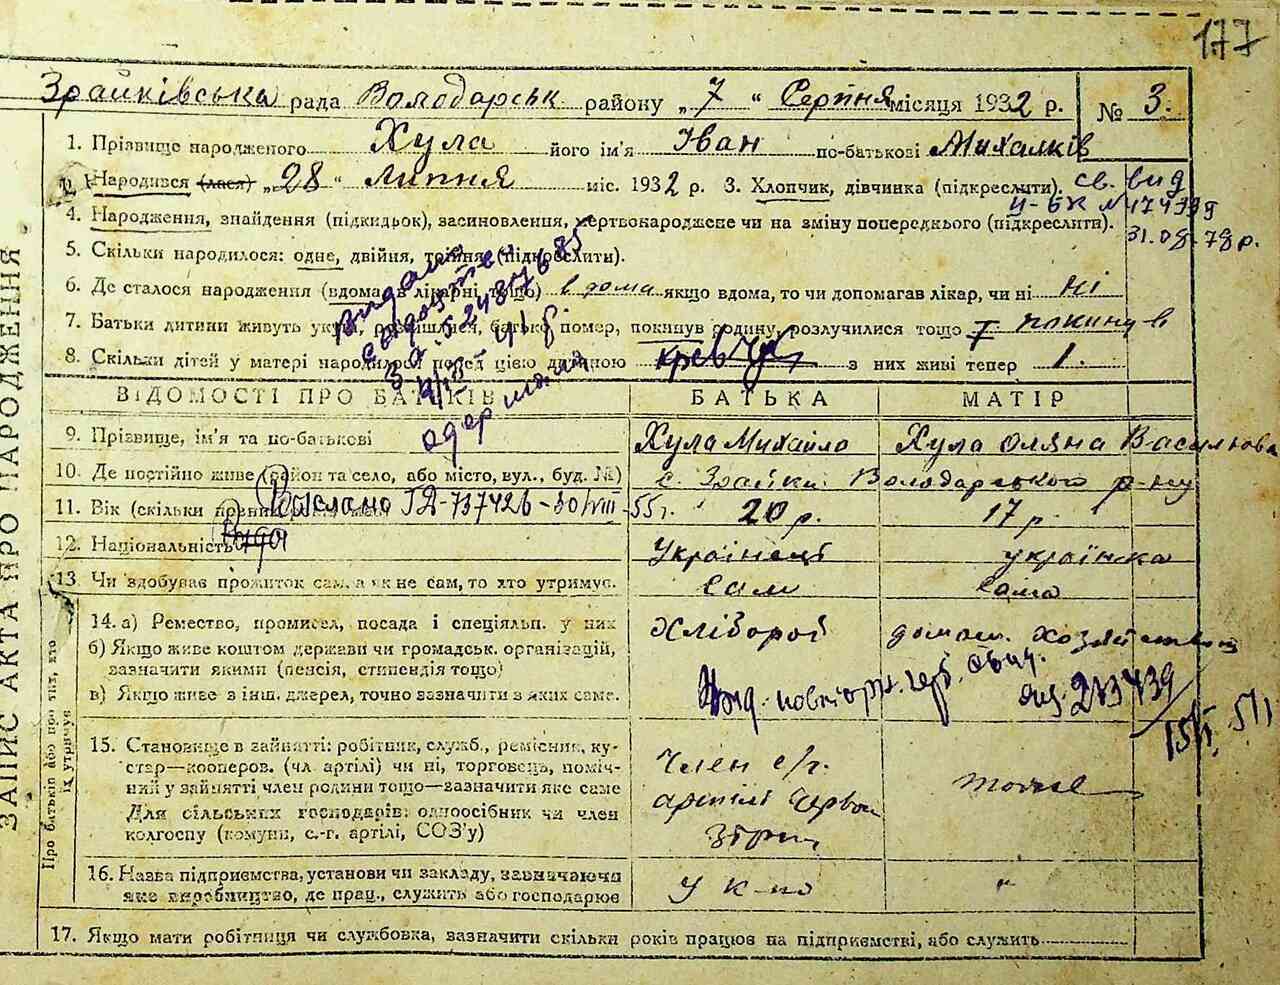 177
Зрайківська рада Володарськ району „7“ Серпня місяця 1932 р. № 3.
1. Прізвище народженого Хула його ім'я Іван по-батькові Михалків
Народився (лася) „28“ Липня міс. 1932 р. 3. Хлопчик, дівчинка (підкреслити). св. вид
4. Народження, знайдення (підкидьок), засиновлення, мертвонароджене чи на зміну попереднього (підкреслити).
31.08.78 р.
5. Скільки народилося: одне, двійня, трійня (підкреслити).
6. Де сталося народження (вдома, в лікарні тощо) в дома якщо вдома, то чи допомагав лікар, чи ні ні
7. Батьки дитини живуть укупі, розійшлися, батько помер, покинув родину, розлучилися тощо покинув
8. Скільки дітей у матері народилося перед цією дитиною з них живі тепер 1.
ВІДОМОСТІ ПРО БАТЬКІВ БАТЬКА МАТІР
9. Прізвище, ім'я та по-батькові Хула Михайло Хула Оляна Василівна
10. Де постійно живе (район та село, або місто, вул., буд. №) с. Зрайки Володарського р-ну
11. Вік (скільки 20 р. 17 р.
Выслано
12. Національність Українець українка
13. Чи здобуває прожиток сам, а як не сам, то хто утримує. Сам Сама
14. а) Ремество, промисел, посада і спеціяльн. у них Хлібороб домаш. хозяйством
б) Якщо живе коштом держави чи громадськ. організацій,
зазначити якими (пенсія, стипендія тощо)
в) Якщо живе з інш. джерел, точно зазначити з яких саме.
15. Становище в зайнятті: робітник, служб., ремісник, ку-
стар—кооперов. (чл. артілі) чи ні, торговець, поміч-
ний у зайнятті член родини тощо—зазначити яке саме
Для сільських господарів: одноосібник чи член
колгоспу (комуни, с.-г. артілі, СОЗ'у)
Член с/г.
артілі
тоже
16. Назва підприємства, установи чи закладу, зазначаючи
яке виробництво, де прац., служить або господарює
"
17. Якщо мати робітниця чи службовка, зазначити скільки років працює на підприємстві, або служить
ЗАПИС АКТА ПРО НАРОДЖЕННЯ
Про батьків або про тих, хто
їх утримує